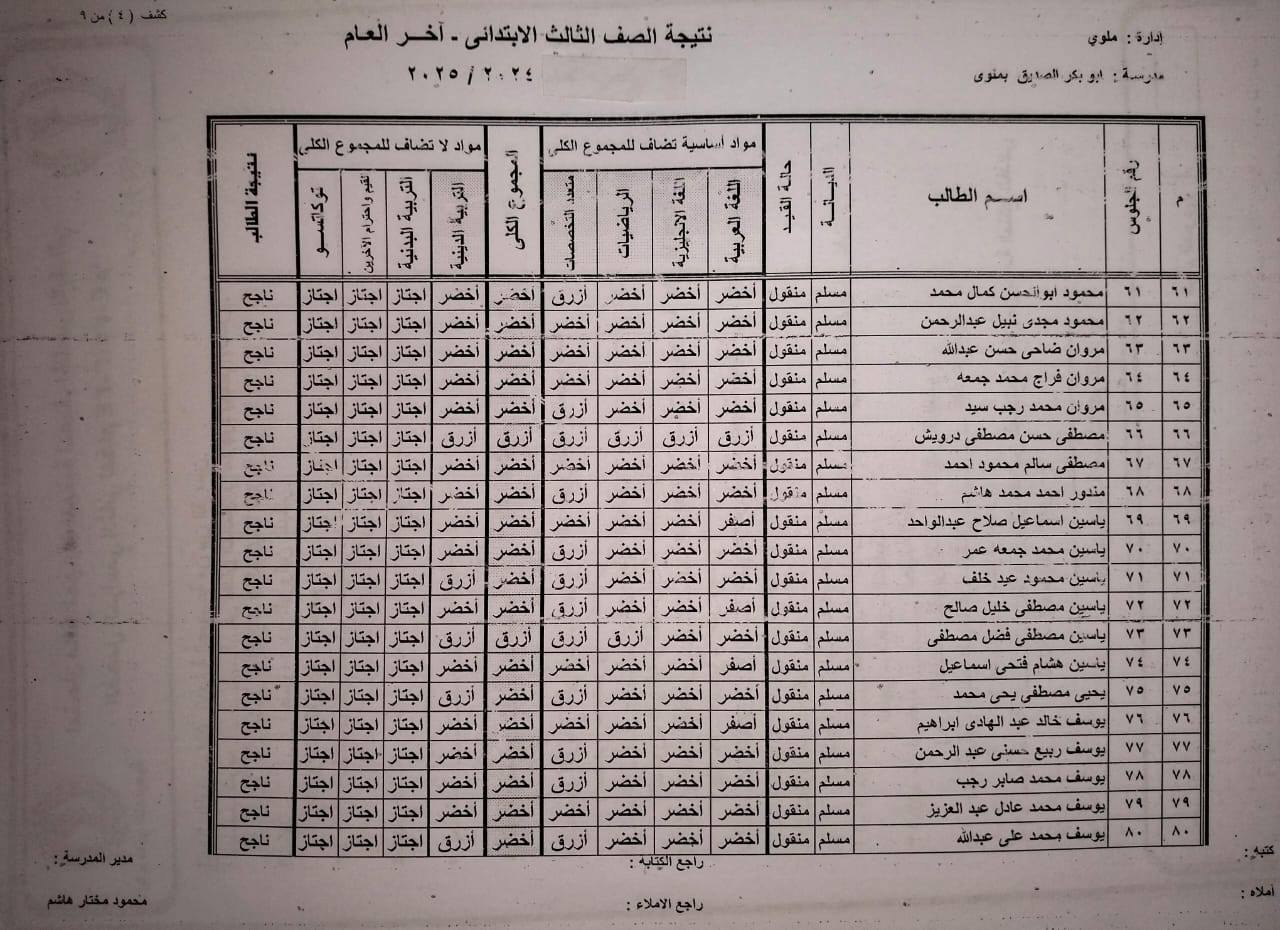 كشف ( ٤ ) من ٩
إدارة : ملوي
نتيجة الصف الثالث الابتدائى - آخر العام
مدرسة : ابو بكر الصديق بملوى
٢٠٢٤ / ٢٠٢٥
م رقم الجلوس اسم الطالب الديانة حالة القيد مواد أساسية تضاف للمجموع الكلى المجموع الكلى مواد لا تضاف للمجموع الكلى نتيجة الطالب
اللغة العربية اللغة الانجليزية الرياضيات متعدد التخصصات التربية الدينية التربية البدنية القيم واحترام الاخرين توكاتسو
٦١ ٦١ محمود ابوالحسن كمال محمد مسلم منقول أخضر أخضر أخضر أزرق أخضر أخضر اجتاز اجتاز اجتاز ناجح
٦٢ ٦٢ محمود مجدى نبيل عبدالرحمن مسلم منقول أخضر أخضر أخضر أخضر أخضر أخضر اجتاز اجتاز اجتاز ناجح
٦٣ ٦٣ مروان ضاحى حسن عبدالله مسلم منقول أخضر أخضر أخضر أخضر أخضر أخضر اجتاز اجتاز اجتاز ناجح
٦٤ ٦٤ مروان فراج محمد جمعه مسلم منقول أخضر أخضر أخضر أخضر أخضر أخضر اجتاز اجتاز اجتاز ناجح
٦٥ ٦٥ مروان محمد رجب سيد مسلم منقول أخضر أخضر أخضر أزرق أخضر أخضر اجتاز اجتاز اجتاز ناجح
٦٦ ٦٦ مصطفى حسن مصطفى درويش مسلم منقول أزرق أزرق أزرق أزرق أزرق أزرق اجتاز اجتاز اجتاز ناجح
٦٧ ٦٧ مصطفى سالم محمود احمد مسلم منقول أخضر أخضر أخضر أخضر أخضر أخضر اجتاز اجتاز اجتاز ناجح
٦٨ ٦٨ مندور احمد محمد هاشم مسلم منقول أخضر أخضر أخضر أزرق أخضر أخضر اجتاز اجتاز اجتاز ناجح
٦٩ ٦٩ ياسين اسماعيل صلاح عبدالواحد مسلم منقول أصفر أخضر أخضر أخضر أخضر أخضر اجتاز اجتاز اجتاز ناجح
٧٠ ٧٠ ياسين محمد جمعه عمر مسلم منقول أخضر أخضر أخضر أزرق أخضر أخضر اجتاز اجتاز اجتاز ناجح
٧١ ٧١ ياسين محمود عيد خلف مسلم منقول أخضر أخضر أخضر أزرق أخضر أزرق اجتاز اجتاز اجتاز ناجح
٧٢ ٧٢ ياسين مصطفى خليل صالح مسلم منقول أصفر أخضر أخضر أزرق أخضر أخضر اجتاز اجتاز اجتاز ناجح
٧٣ ٧٣ ياسين مصطفى فضل مصطفى مسلم منقول أخضر أخضر أزرق أزرق أزرق أزرق اجتاز اجتاز اجتاز ناجح
٧٤ ٧٤ ياسين هشام فتحى اسماعيل مسلم منقول أصفر أخضر أخضر أخضر أخضر أخضر اجتاز اجتاز اجتاز ناجح
٧٥ ٧٥ يحيى مصطفى يحى محمد مسلم منقول أخضر أخضر أخضر أزرق أخضر أزرق اجتاز اجتاز اجتاز ناجح
٧٦ ٧٦ يوسف خالد عبد الهادى ابراهيم مسلم منقول أصفر أخضر أخضر أزرق أخضر أخضر اجتاز اجتاز اجتاز ناجح
٧٧ ٧٧ يوسف ربيع حسنى عبد الرحمن مسلم منقول أخضر أخضر أخضر أزرق أخضر أخضر اجتاز اجتاز اجتاز ناجح
٧٨ ٧٨ يوسف محمد صابر رجب مسلم منقول أخضر أخضر أخضر أزرق أخضر أخضر اجتاز اجتاز اجتاز ناجح
٧٩ ٧٩ يوسف محمد عادل عبد العزيز مسلم منقول أخضر أخضر أخضر أخضر أخضر أخضر اجتاز اجتاز اجتاز ناجح
٨٠ ٨٠ يوسف محمد على عبدالله مسلم منقول أخضر أخضر أخضر أزرق أخضر أزرق اجتاز اجتاز اجتاز ناجح
كتبه : راجع الكتابة : مدير المدرسة :
أملاه : راجع الاملاء : محمود مختار هاشم